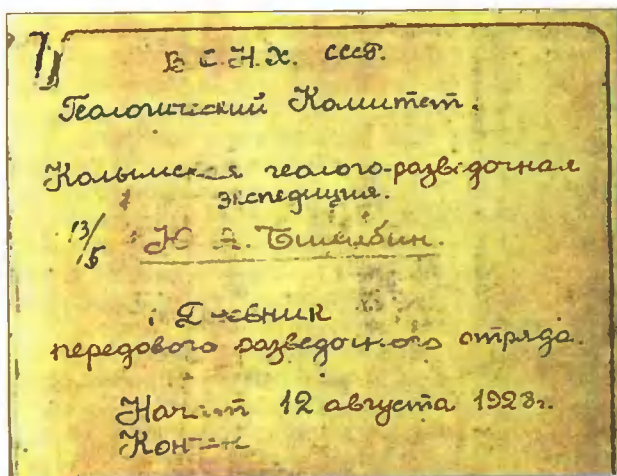 В.С.Н.Х. СССР.
Геологический Комитет.
Колымская геолого-разведочная
экспедиция.
13/5 Ю. А. Билибин.
Дневник
передового разведочного отряда.
Начат 12 августа 1928г.
Кончен